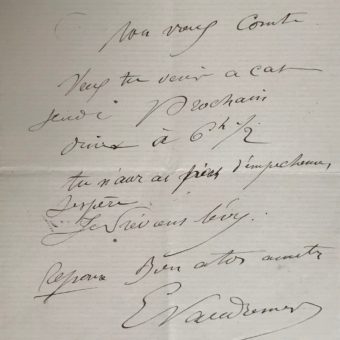 Mon vieux Comte
Veux tu venir a cat
jeudi Prochain
diner à 6h 1/2
tu n'aur as pas d'empecheme,
j'espère.
Je Préviens Lévy.
Reponse Bien a toi
E Vaudremer